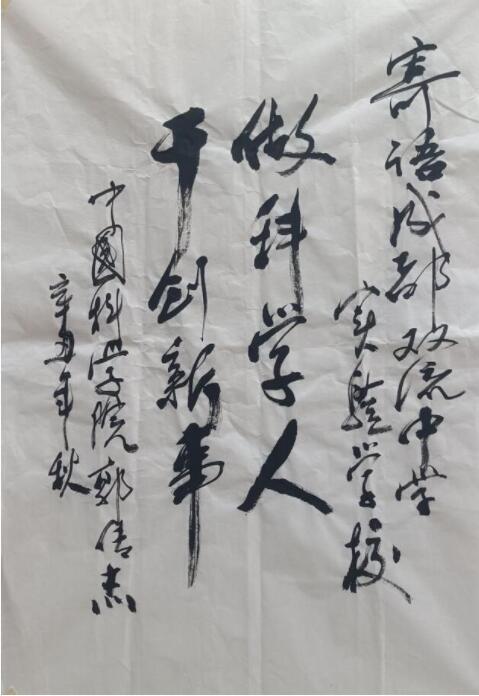 寄语成都双流中学
实验学校
做科学人
干创新事
中国科学院郭传杰
辛丑年秋